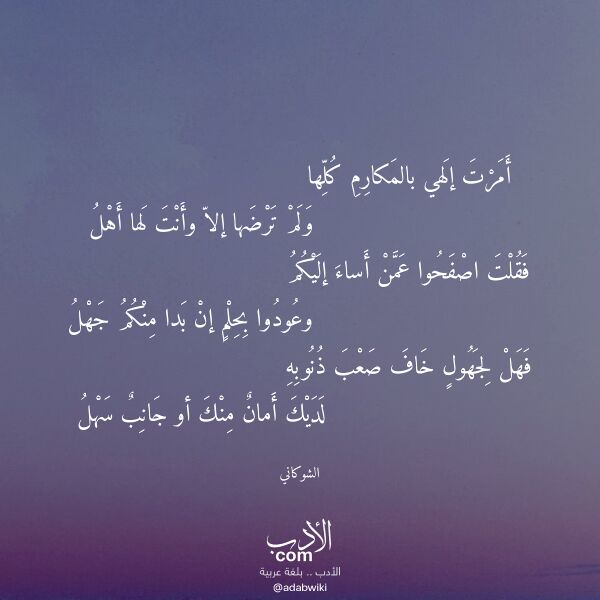 أَمَرْتَ إلَهي بالمَكارِمِ كُلِّها
وَلَمْ تَرْضَها إلاّ وأَنْتَ لَها أَهْلُ
فَقُلْتَ اصْفَحُوا عَمَّنْ أَساءَ إلَيْكُمُ
وعُودُوا بِحِلْمٍ إنْ بَدا مِنْكُمُ جَهْلُ
فَهَلْ لِجَهُولٍ خَافَ صَعْبَ ذُنُوبِهِ
لَدَيْكَ أَمانٌ مِنْكَ أو جَانِبٌ سَهْلُ
الشوكاني
الأدب
com
الأدب .. بلغة عربية
@adabwiki